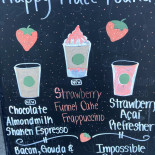 Happy
NEW
NEW
Chocolate
Almondmilk
Shaken Espresso
Strawberry
Funnel Cake
Frappuccino
Strawberry
Açaí
Refresher
Bacon, Gouda &
Impossible